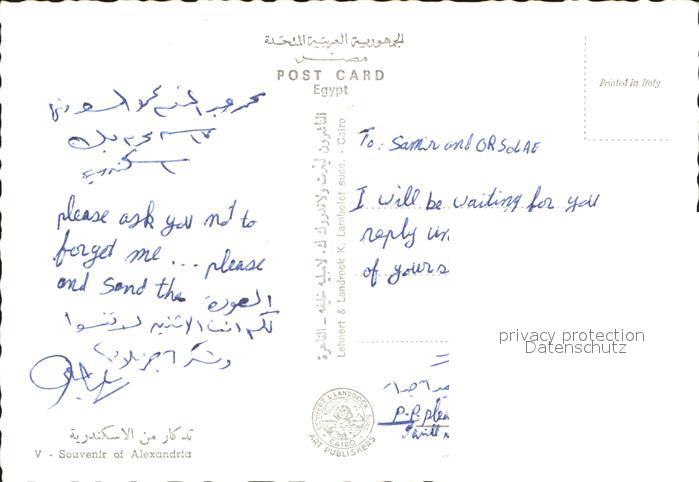 الجمهورية العربية المتحدة
مصر
POST CARD
Egypt
Printed in Italy
محمد عبد المنعم
محرم بك
اسكندرية
please ask you not to
forget me ... please
and send the الصورة
لكم انتما الاثنين لا تنسوا
وشكرا جزيلا
To: Samir and ORSOLAE
I will be waiting for you
reply un
of yours
P.P. plea
I will
Lehnert & Landrock K. Lambelet succ. - Cairo
LEHNERT & LANDROCK SUCC.
CAIRO
ART PUBLISHERS
تذكار من الاسكندرية
V - Souvenir of Alexandria
privacy protection
Datenschutz